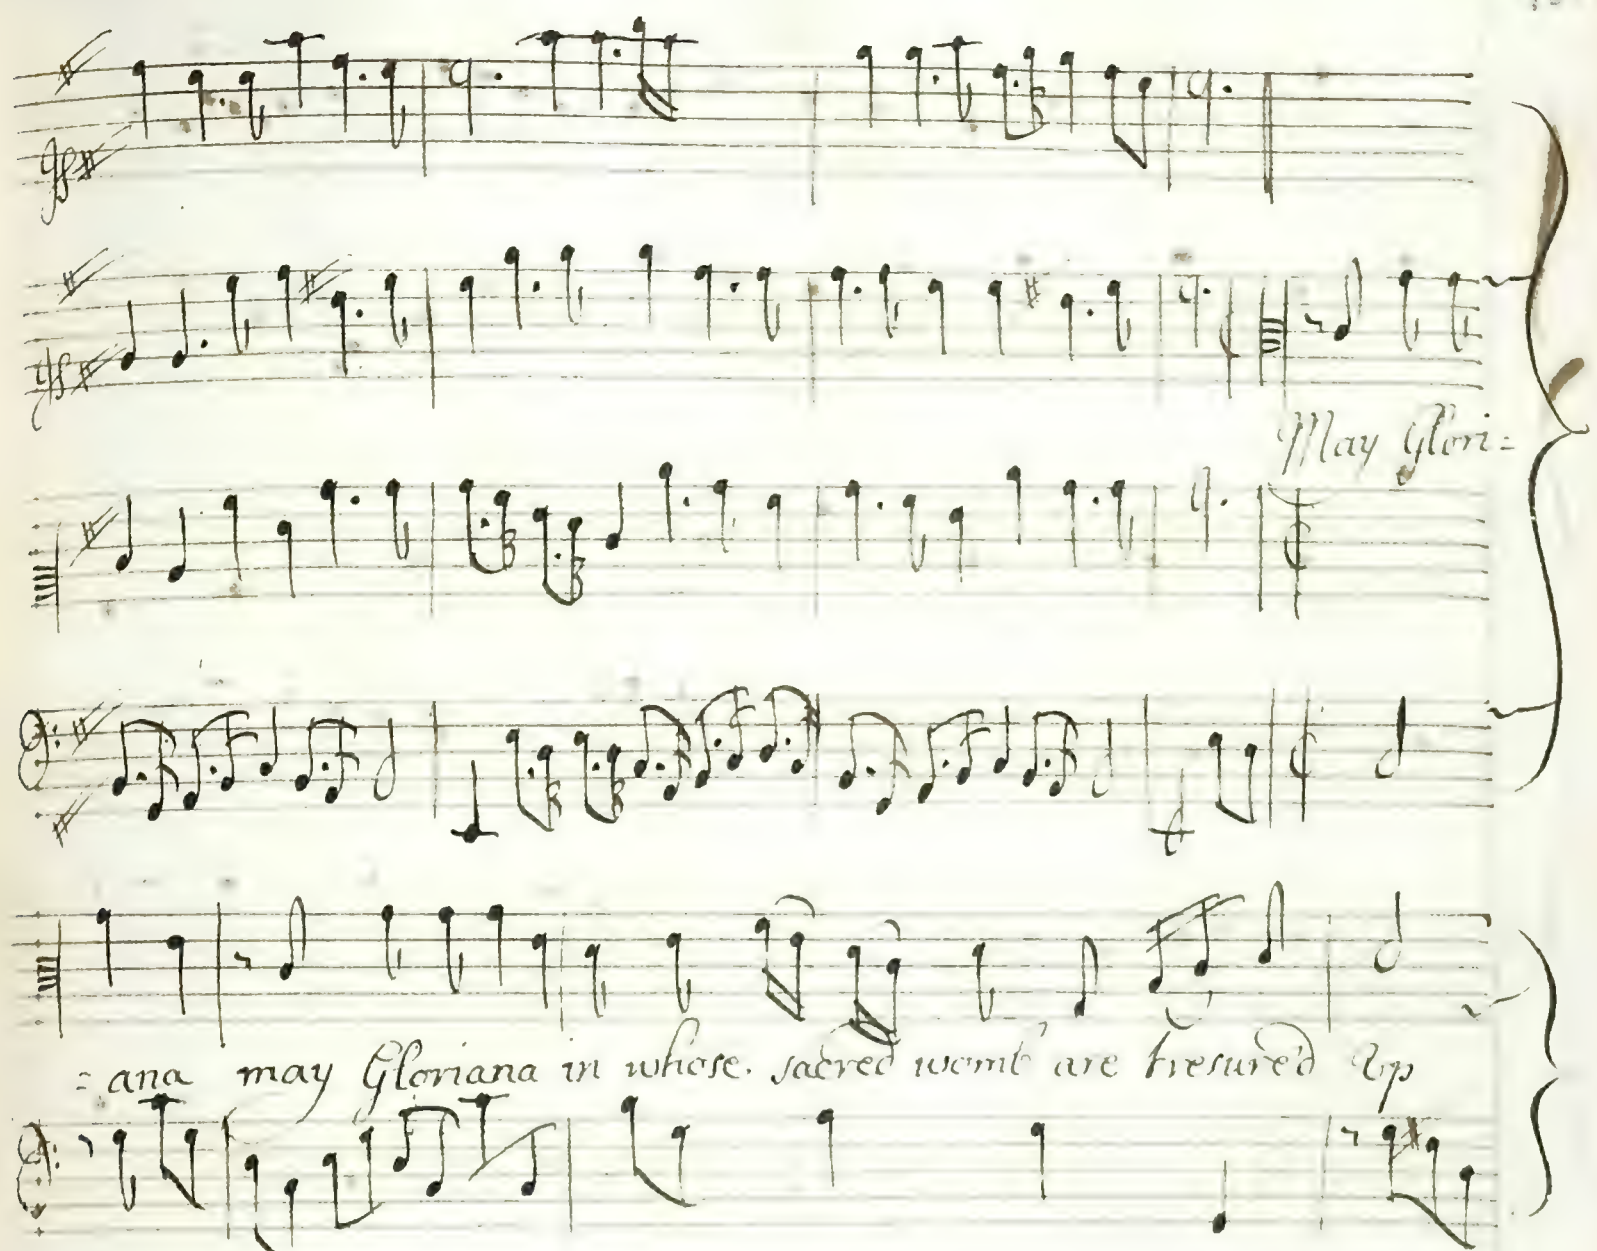 May Glori=
=ana may Gloriana in whose. sacred womb are tresure'd Up